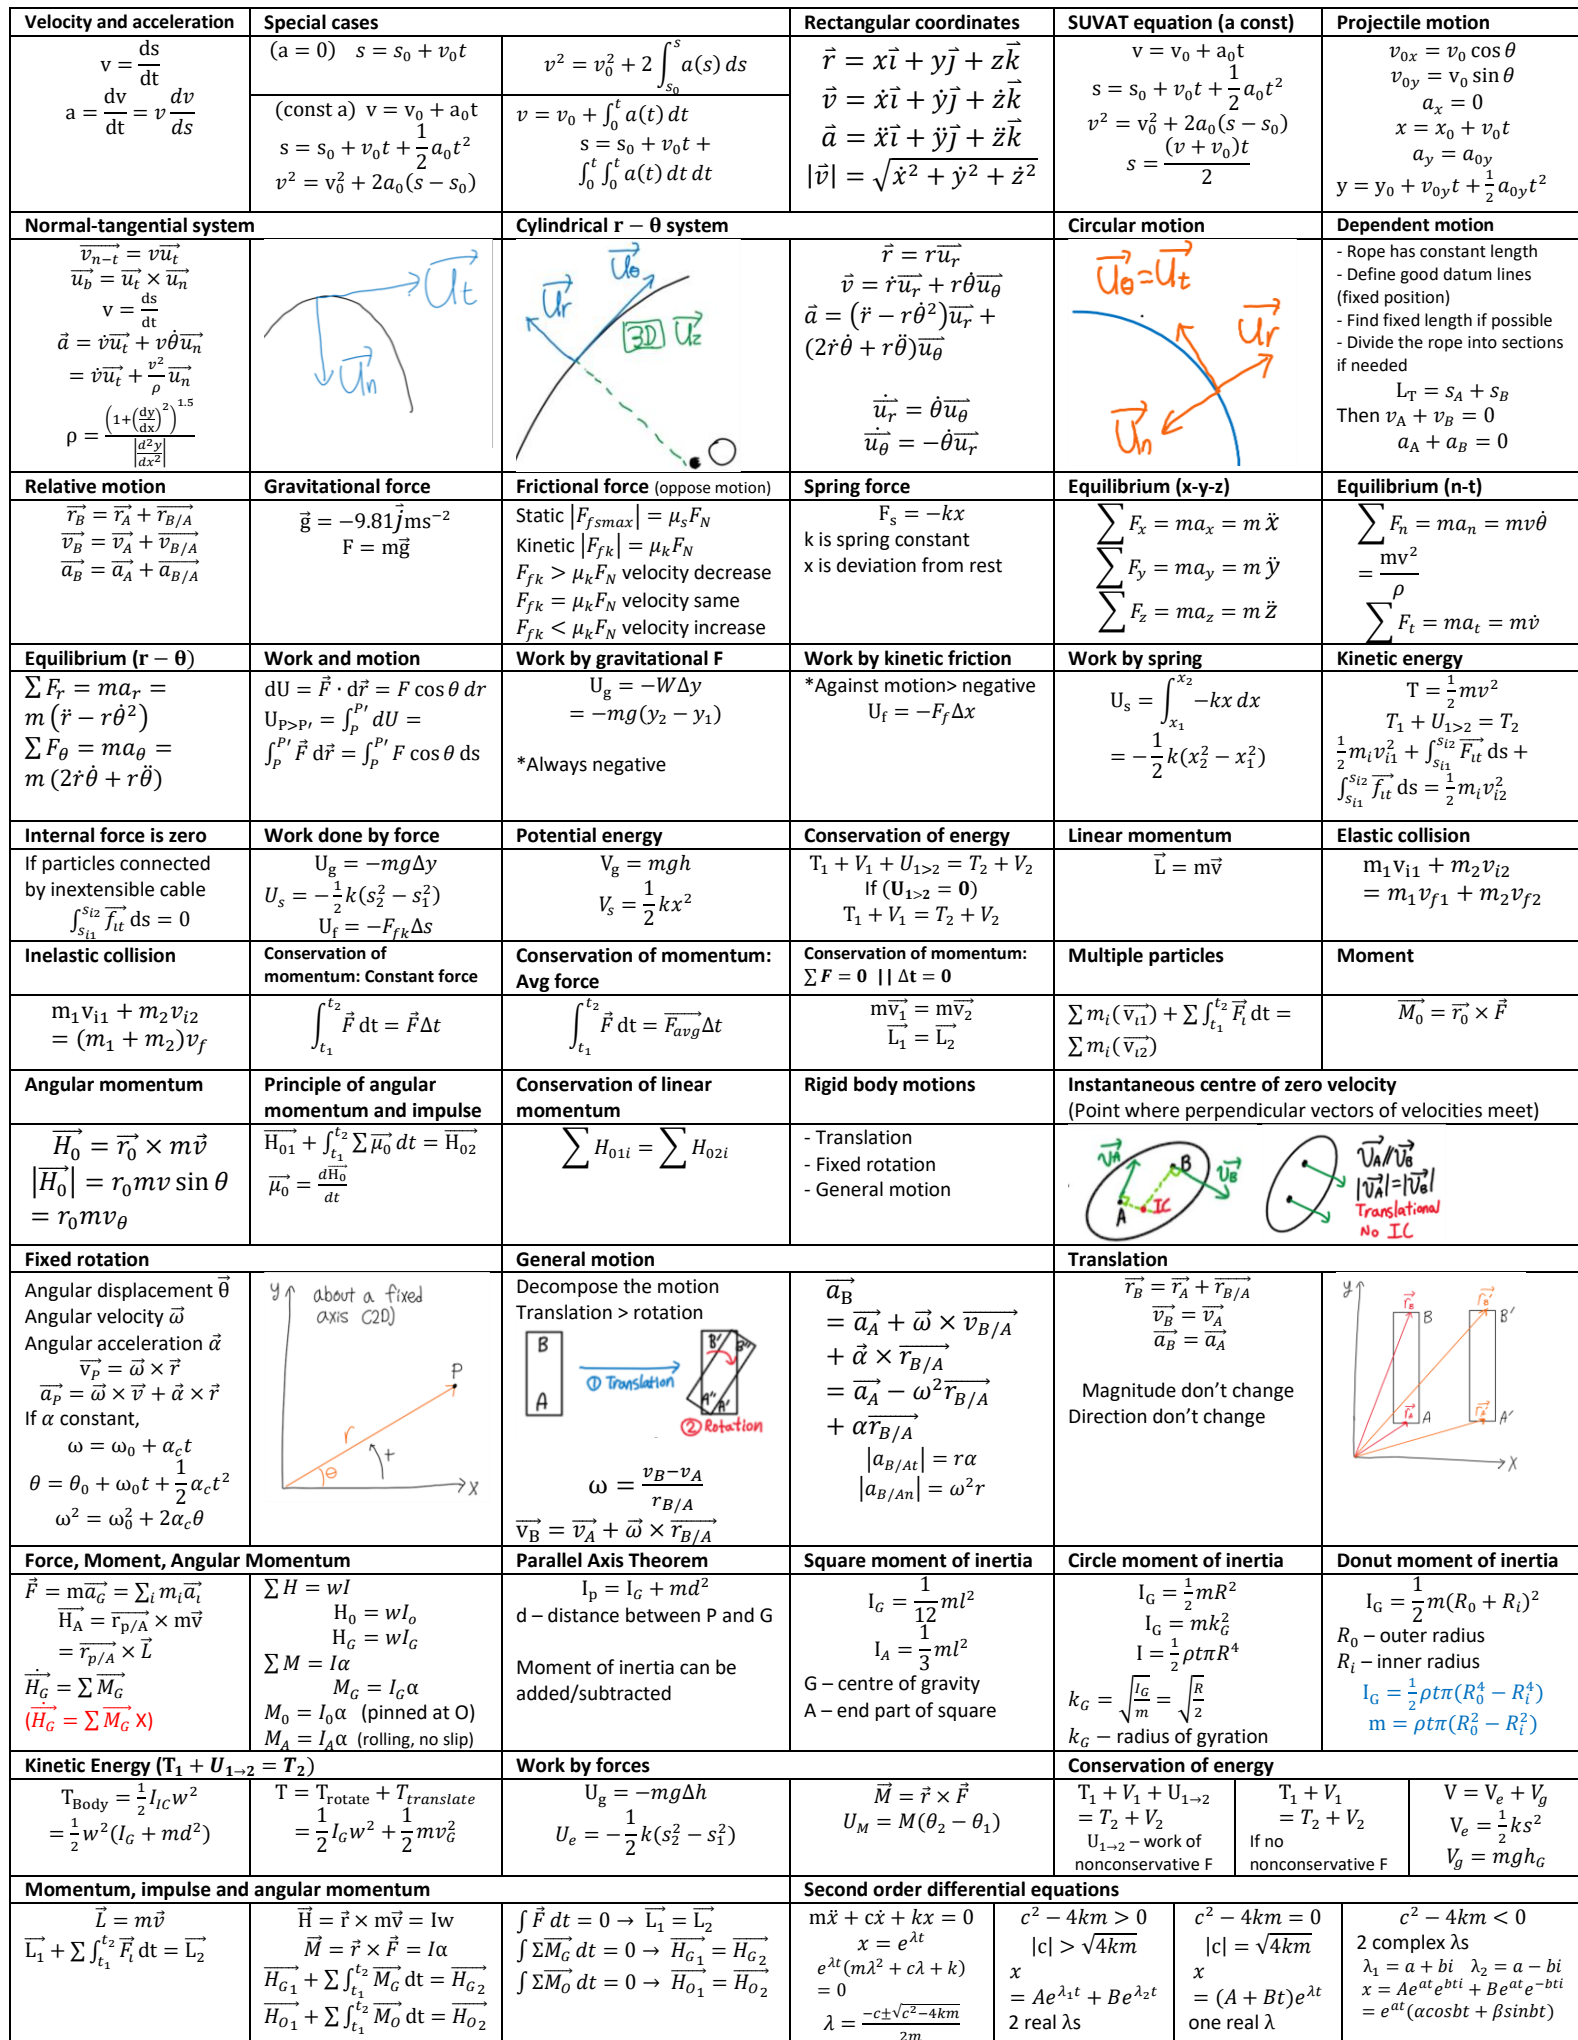 Velocity and acceleration
v = ds/dt
a = dv/dt = v dv/ds
Special cases
(a = 0) s = s₀ + v₀t
v² = v₀² + 2∫_{s₀}^{s} a(s) ds
(const a) v = v₀ + a₀t
s = s₀ + v₀t + 1/2 a₀t²
v² = v₀² + 2a₀(s − s₀)
v = v₀ + ∫₀ᵗ a(t) dt
s = s₀ + v₀t +
∫₀ᵗ ∫₀ᵗ a(t) dt dt
Rectangular coordinates
r⃗ = xi⃗ + yj⃗ + zk⃗
v⃗ = ẋi⃗ + ẏj⃗ + żk⃗
a⃗ = ẍi⃗ + ÿj⃗ + z̈k⃗
|v⃗| = √(ẋ² + ẏ² + ż²)
SUVAT equation (a const)
v = v₀ + a₀t
s = s₀ + v₀t + 1/2 a₀t²
v² = v₀² + 2a₀(s − s₀)
s = (v + v₀)t / 2
Projectile motion
v₀ₓ = v₀ cos θ
v₀y = v₀ sin θ
aₓ = 0
x = x₀ + v₀t
a_y = a₀y
y = y₀ + v₀y t + 1/2 a₀y t²
Normal-tangential system
v⃗_{n−t} = vu⃗_t
u⃗_b = u⃗_t × u⃗_n
v = ds/dt
a⃗ = v̇u⃗_t + vθ̇u⃗_n
= v̇u⃗_t + v²/ρ u⃗_n
ρ = (1+(dy/dx)²)^{1.5} / |d²y/dx²|
U⃗t
U⃗n
Cylindrical r − θ system
U⃗θ
U⃗r
3D U⃗z
r⃗ = ru⃗_r
v⃗ = ṙu⃗_r + rθ̇u⃗_θ
a⃗ = (r̈ − rθ̇²)u⃗_r +
(2ṙθ̇ + rθ̈)u⃗_θ
u̇⃗_r = θ̇u⃗_θ
u̇⃗_θ = −θ̇u⃗_r
Circular motion
U⃗θ = U⃗t
U⃗r
U⃗n
Dependent motion
- Rope has constant length
- Define good datum lines
(fixed position)
- Find fixed length if possible
- Divide the rope into sections
if needed
L_T = s_A + s_B
Then v_A + v_B = 0
a_A + a_B = 0
Relative motion
r⃗_B = r⃗_A + r⃗_{B/A}
v⃗_B = v⃗_A + v⃗_{B/A}
a⃗_B = a⃗_A + a⃗_{B/A}
Gravitational force
g⃗ = −9.81j⃗ms⁻²
F = mg⃗
Frictional force (oppose motion)
Static |F_{fsmax}| = μ_sF_N
Kinetic |F_{fk}| = μ_kF_N
F_{fk} > μ_kF_N velocity decrease
F_{fk} = μ_kF_N velocity same
F_{fk} < μ_kF_N velocity increase
Spring force
F_s = −kx
k is spring constant
x is deviation from rest
Equilibrium (x-y-z)
∑F_x = ma_x = m ẍ
∑F_y = ma_y = m ÿ
∑F_z = ma_z = m z̈
Equilibrium (n-t)
∑F_n = ma_n = mvθ̇
= mv²/ρ
∑F_t = ma_t = mv̇
Equilibrium (r − θ)
∑F_r = ma_r =
m (r̈ − rθ̇²)
∑F_θ = ma_θ =
m (2ṙθ̇ + rθ̈)
Work and motion
dU = F⃗ · dr⃗ = F cos θ dr
U_{P>P′} = ∫_P^{P′} dU =
∫_P^{P′} F⃗ dr⃗ = ∫_P^{P′} F cos θ ds
Work by gravitational F
U_g = −WΔy
= −mg(y₂ − y₁)
*Always negative
Work by kinetic friction
*Against motion> negative
U_f = −F_fΔx
Work by spring
U_s = ∫_{x₁}^{x₂} −kx dx
= −1/2 k(x₂² − x₁²)
Kinetic energy
T = 1/2 mv²
T₁ + U_{1>2} = T₂
1/2 m_i v_{i1}² + ∫_{s_{i1}}^{s_{i2}} F⃗_{it} ds +
∫_{s_{i1}}^{s_{i2}} f⃗_{it} ds = 1/2 m_i v_{i2}²
Internal force is zero
If particles connected
by inextensible cable
∫_{s_{i1}}^{s_{i2}} f⃗_{it} ds = 0
Work done by force
U_g = −mgΔy
U_s = −1/2 k(s₂² − s₁²)
U_f = −F_{fk}Δs
Potential energy
V_g = mgh
V_s = 1/2 kx²
Conservation of energy
T₁ + V₁ + U_{1>2} = T₂ + V₂
If (U_{1>2} = 0)
T₁ + V₁ = T₂ + V₂
Linear momentum
L⃗ = mv⃗
Elastic collision
m₁v_{i1} + m₂v_{i2}
= m₁v_{f1} + m₂v_{f2}
Inelastic collision
m₁v_{i1} + m₂v_{i2}
= (m₁ + m₂)v_f
Conservation of
momentum: Constant force
∫_{t₁}^{t₂} F⃗ dt = F⃗Δt
Conservation of momentum:
Avg force
∫_{t₁}^{t₂} F⃗ dt = F⃗_{avg}Δt
Conservation of momentum:
∑F = 0 || Δt = 0
mv⃗₁ = mv⃗₂
L⃗₁ = L⃗₂
Multiple particles
∑m_i(v⃗_{i1}) + ∑∫_{t₁}^{t₂} F⃗_i dt =
∑m_i(v⃗_{i2})
Moment
M⃗₀ = r⃗₀ × F⃗
Angular momentum
H⃗₀ = r⃗₀ × mv⃗
|H⃗₀| = r₀mv sin θ
= r₀mv_θ
Principle of angular
momentum and impulse
H⃗₀₁ + ∫_{t₁}^{t₂} ∑μ⃗₀ dt = H⃗₀₂
μ⃗₀ = dH⃗₀/dt
Conservation of linear
momentum
∑H_{01i} = ∑H_{02i}
Rigid body motions
- Translation
- Fixed rotation
- General motion
Instantaneous centre of zero velocity
(Point where perpendicular vectors of velocities meet)
v⃗A
B
v⃗B
A
IC
v⃗A // v⃗B
|v⃗A| = |v⃗B|
Translational
No IC
Fixed rotation
Angular displacement θ⃗
Angular velocity ω⃗
Angular acceleration α⃗
v⃗_P = ω⃗ × r⃗
a⃗_P = ω⃗ × v⃗ + α⃗ × r⃗
If α constant,
ω = ω₀ + α_ct
θ = θ₀ + ω₀t + 1/2 α_ct²
ω² = ω₀² + 2α_cθ
y
about a fixed
axis (2D)
P
r
θ
+
x
General motion
Decompose the motion
Translation > rotation
B
A
① Translation
B' B''
A'' A'
② Rotation
ω = (v_B − v_A) / r_{B/A}
v⃗_B = v⃗_A + ω⃗ × r⃗_{B/A}
a⃗_B
= a⃗_A + ω⃗ × v⃗_{B/A}
+ α⃗ × r⃗_{B/A}
= a⃗_A − ω²r⃗_{B/A}
+ αr⃗_{B/A}
|a_{B/At}| = rα
|a_{B/An}| = ω²r
Translation
r⃗_B = r⃗_A + r⃗_{B/A}
v⃗_B = v⃗_A
a⃗_B = a⃗_A
Magnitude don't change
Direction don't change
y
r⃗B
B
r⃗B'
B'
r⃗A
A
r⃗A'
A'
x
Force, Moment, Angular Momentum
F⃗ = ma⃗_G = ∑_i m_i a⃗_i
H⃗_A = r⃗_{p/A} × mv⃗
= r⃗_{p/A} × L⃗
Ḣ⃗_G = ∑M⃗_G
(Ḣ⃗_G = ∑M⃗_G X)
∑H = wI
H₀ = wI_o
H_G = wI_G
∑M = Iα
M_G = I_Gα
M₀ = I₀α (pinned at O)
M_A = I_Aα (rolling, no slip)
Parallel Axis Theorem
I_p = I_G + md²
d – distance between P and G
Moment of inertia can be
added/subtracted
Square moment of inertia
I_G = 1/12 ml²
I_A = 1/3 ml²
G – centre of gravity
A – end part of square
Circle moment of inertia
I_G = 1/2 mR²
I_G = mk_G²
I = 1/2 ρtπR⁴
k_G = √(I_G/m) = √(R/2)
k_G − radius of gyration
Donut moment of inertia
I_G = 1/2 m(R₀ + R_i)²
R₀ – outer radius
R_i – inner radius
I_G = 1/2 ρtπ(R₀⁴ − R_i⁴)
m = ρtπ(R₀² − R_i²)
Kinetic Energy (T₁ + U_{1→2} = T₂)
T_Body = 1/2 I_{IC}w²
= 1/2 w²(I_G + md²)
T = T_rotate + T_translate
= 1/2 I_Gw² + 1/2 mv_G²
Work by forces
U_g = −mgΔh
U_e = −1/2 k(s₂² − s₁²)
M⃗ = r⃗ × F⃗
U_M = M(θ₂ − θ₁)
Conservation of energy
T₁ + V₁ + U_{1→2}
= T₂ + V₂
U_{1→2} – work of
nonconservative F
T₁ + V₁
= T₂ + V₂
If no
nonconservative F
V = V_e + V_g
V_e = 1/2 ks²
V_g = mgh_G
Momentum, impulse and angular momentum
L⃗ = mv⃗
L⃗₁ + ∑∫_{t₁}^{t₂} F⃗_i dt = L⃗₂
H⃗ = r⃗ × mv⃗ = Iw
M⃗ = r⃗ × F⃗ = Iα
H⃗_{G₁} + ∑∫_{t₁}^{t₂} M⃗_G dt = H⃗_{G₂}
H⃗_{O₁} + ∑∫_{t₁}^{t₂} M⃗_O dt = H⃗_{O₂}
∫F⃗ dt = 0 → L⃗₁ = L⃗₂
∫ΣM⃗_G dt = 0 → H⃗_{G₁} = H⃗_{G₂}
∫ΣM⃗_O dt = 0 → H⃗_{O₁} = H⃗_{O₂}
Second order differential equations
mẍ + cẋ + kx = 0
x = e^{λt}
e^{λt}(mλ² + cλ + k)
= 0
λ = (−c±√(c²−4km)) / 2m
c² − 4km > 0
|c| > √4km
x
= Ae^{λ₁t} + Be^{λ₂t}
2 real λs
c² − 4km = 0
|c| = √4km
x
= (A + Bt)e^{λt}
one real λ
c² − 4km < 0
2 complex λs
λ₁ = a + bi λ₂ = a − bi
x = Ae^{at}e^{bti} + Be^{at}e^{−bti}
= e^{at}(αcosbt + βsinbt)